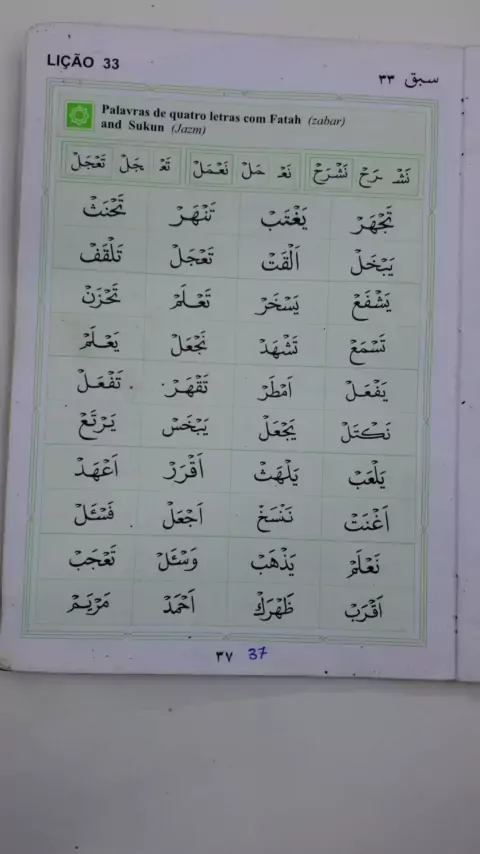 LIÇÃO 33 سبق ٣٣
Palavras de quatro letras com Fatah (zabar)
and Sukun (Jazm)
نَشْ رَحْ نَشْرَحْ نَعْ مَلْ نَعْمَلْ تَعْ جَلْ تَعْجَلْ
تَجْهَرْ يَغْتَبْ تَنْهَرْ تَحْنَثْ
يَبْخَلْ اَلْقَتْ تَعْجَلْ تَلْقَفْ
يَشْفَعْ يَسْخَرْ تَعْلَمْ تَحْزَنْ
تَسْمَعْ تَشْهَدْ نَجْعَلْ يَعْلَمْ
يَفْعَلْ اَمْطَرْ تَقْهَرْ تَفْعَلْ
نَكْتَلْ يَجْعَلْ يَبْخَسْ يَرْتَعْ
يَلْعَبْ يَلْهَثْ اَقْرَرْ اَعْهَدْ
اَغْنَتْ نَنْسَخْ اَجْعَلْ فَسْئَلْ
نَعْلَمْ يَذْهَبْ وَسْئَلْ تَعْجَبْ
اَقْرَبْ ظَهْرَكْ اَحْمَدْ مَرْيَمْ
٣٧ 37